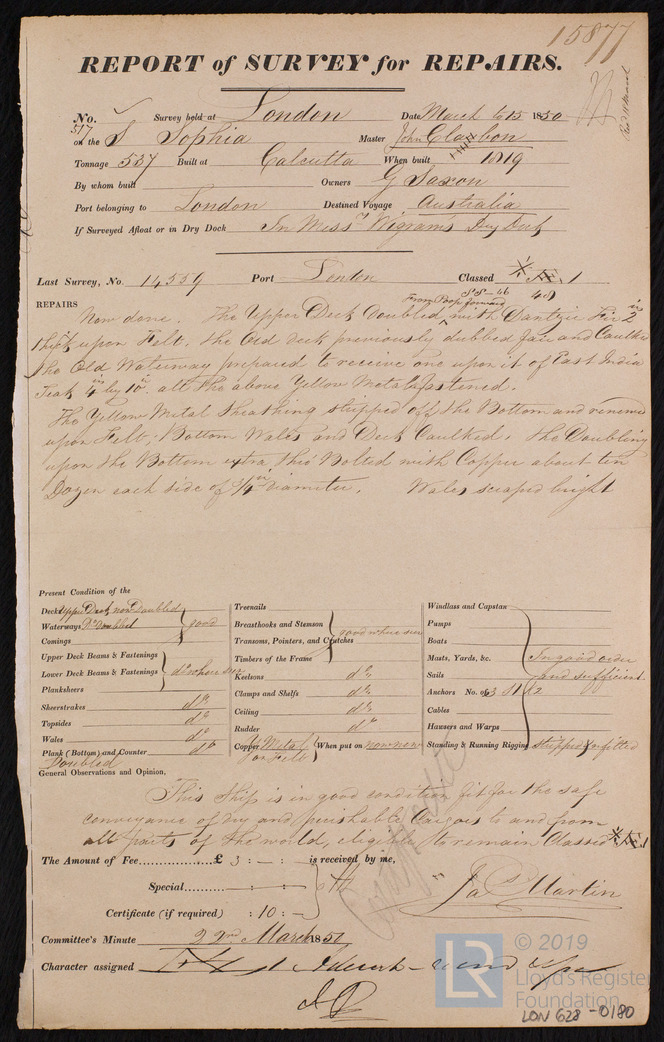 15877
REPORT of SURVEY for REPAIRS.
No. Survey held at London Date March 6 15 1850
517
on the S Sophia Master John Clarbon
Tonnage 537 Built at Calcutta When built 1819
By whom built Owners G Saxon
Port belonging to London Destined Voyage Australia
If Surveyed Afloat or in Dry Dock In Messrs Wigram's Dry Dock
Last Survey, No. 14559 Port London Classed 1
REPAIRS
From Poop forward
Now done. The Upper Deck Doubled with Dantzic Fir 2 in
thick upon Felt, the Old deck previously dubbed fair and Caulked
the Old Waterway prepared to receive one upon it of East India
Teak 4 in by 10 in all the above Yellow Metal fastened.
The Yellow Metal Sheathing stripped off the Bottom and renewed
upon Felt, Bottom Wales and Deck Caulked. The Doubling
upon the Bottom extra thro' Bolted with Copper about ten
Dozen each side of 3/4 in diameter. Wales scraped bright
Present Condition of the
Decks Upper Deck now Doubled
Waterways Do Doubled good
Comings
Upper Deck Beams & Fastenings
Lower Deck Beams & Fastenings do where seen
Planksheers
Sheerstrakes do
Topsides do
Wales do
Plank (Bottom) and Counter do
Doubled
Treenails
Breasthooks and Stemson
Transoms, Pointers, and Crutches good where seen
Timbers of the Frame
Keelsons do
Clamps and Shelfs do
Ceiling do
Rudder do
Copper Y Metal When put on now new
on Felt
Windlass and Capstan
Pumps
Boats
Masts, Yards, &c. In good order
Sails and sufficient
Anchors No. of 3 S1 K2
Cables
Hawsers and Warps
Standing & Running Rigging stripped & refitted
General Observations and Opinion,
This Ship is in good condition fit for the safe
conveyance of dry and perishable Cargoes to and from
all parts of the world, eligible to remain Classed 1
The Amount of Fee £ 3 : - : - is received by me,
Special : :
Certificate (if required) : 10 : -
Jas Martin
Committee's Minute 22nd March 1850
Character assigned
LR
© 2019
Lloyd's Register
Foundation
LON 628 - 0180